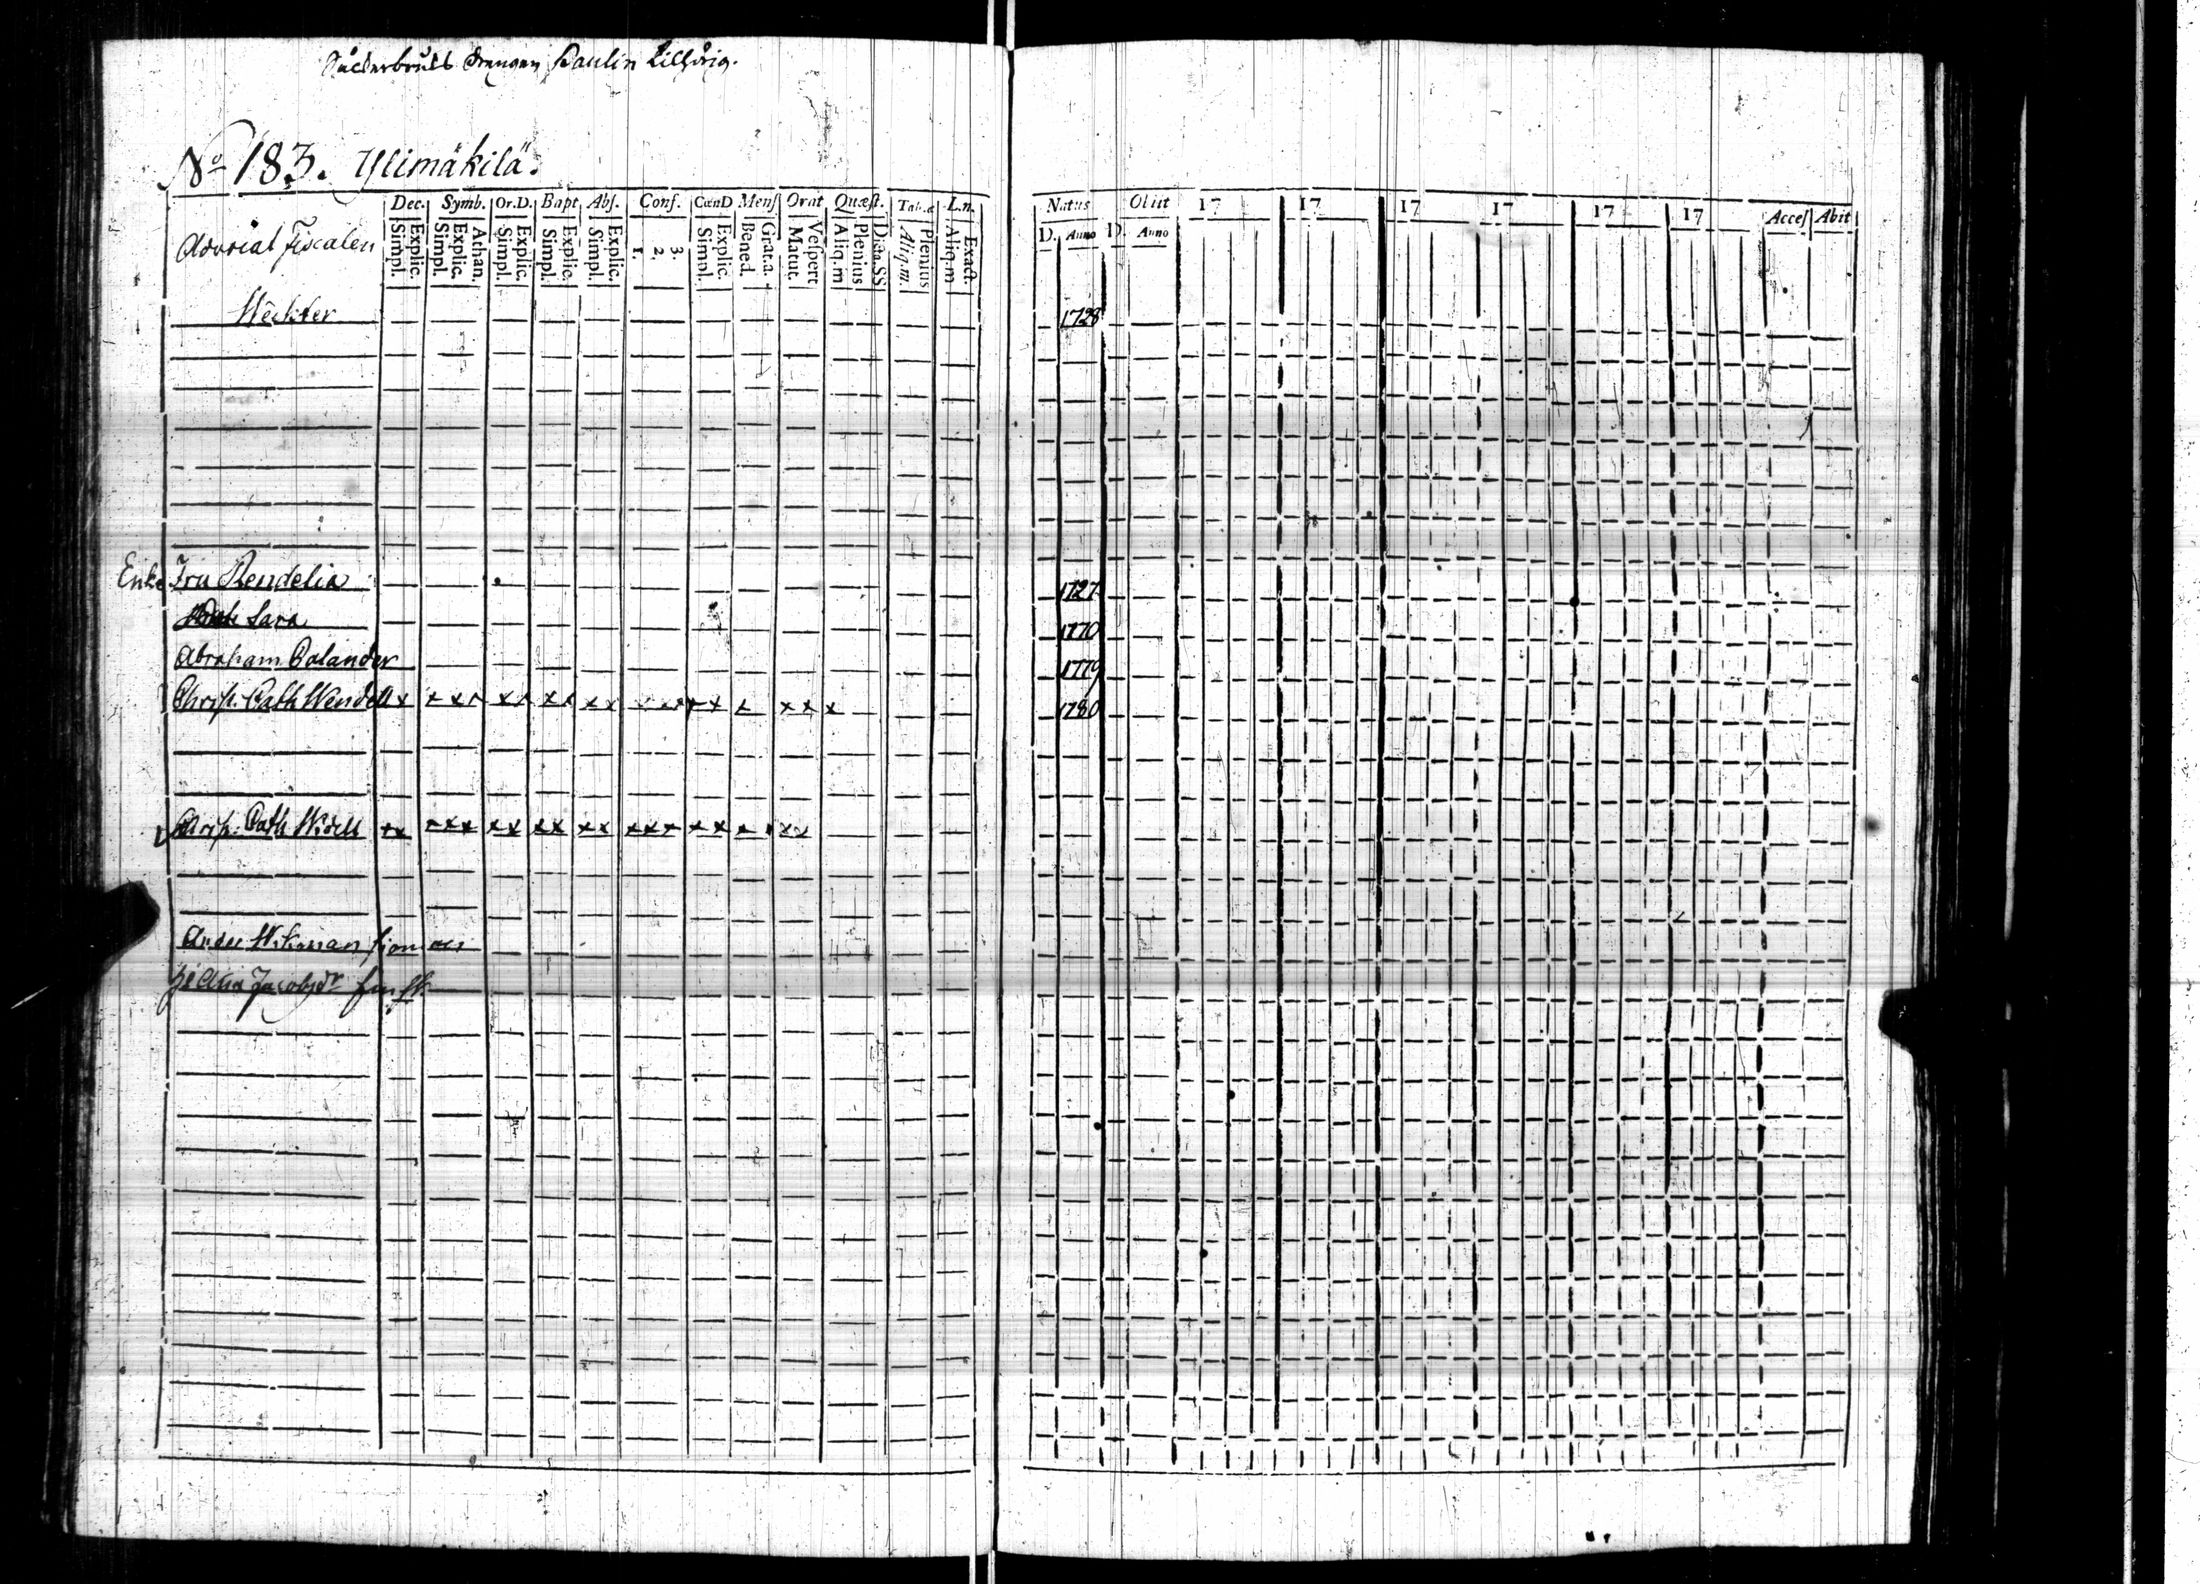 drengen Paulin tillhörig.
No 183. Ylimäkilä.
Dec. Symb. Or.D. Bapt Abs. Conf. CœnD Mens Orat Quæst. Tab.æ Ln.
Simpl. Explic. Simpl. Explic. Athan. Simpl. Explic. Simpl. Explic. Simpl. Explic. 1. 2. 3. Simpl. Explic. Bened. Grat.a. Matut. Vespert Aliq.m Plenius Dicta.SS Aliq.m. Plenius Aliq.m Exact.
Natus Obiit 17 17 17 17 17 17 Acces Abit
D. Anno D. Anno
Advocat Fiscalen
Weckter 1728
Enka Fru Rendelia 1727
Sara 1770
Abraham Calander 1779
Christ. Cath Wendell x x x x x x x x x x x x x x x x x x 1780
Christ. Cath Widell x x x x x x x x x x x x x x x x x x x x
Anders Wikman
Jacobsdr